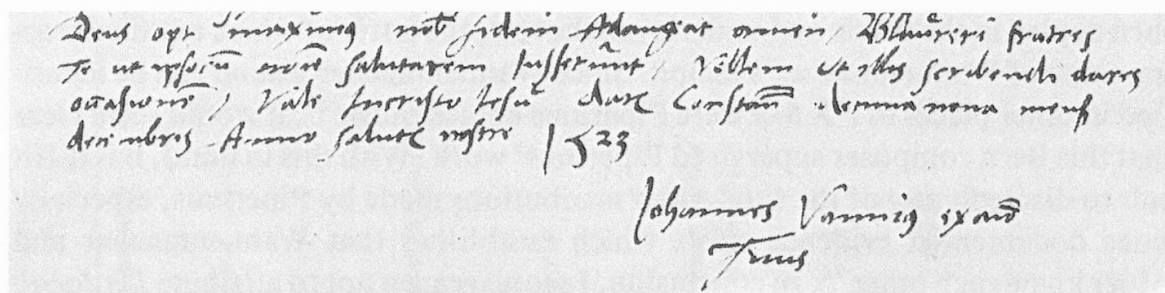 Deus opt maximus nob fidem Adaugeat amen. Blaureri fratres
Te ut ipsorum noīe salutarem Jusserunt. Vellem Ut illis scribendi dares
occasionē, Vale In cristo Jesu. dat Constan decima nona mens
decimbris Anno salut nostre 1523
Johannes Vannius ex
Tuus